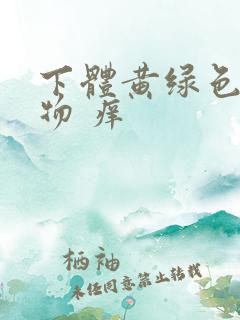 下體黄绿色
物 痒
栖袖
未经同意禁止转载